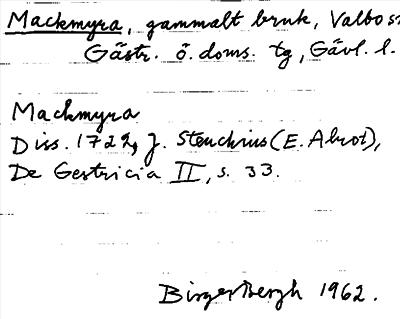 Mackmyra, gammalt bruk, Valbo sn
Gästr. ö. doms. tg, Gävl. l.
Mackmyra
Diss. 1729, J. Stenchius (E. Abrot),
De Gestricia II, s. 33.
Birger Bergh 1962.